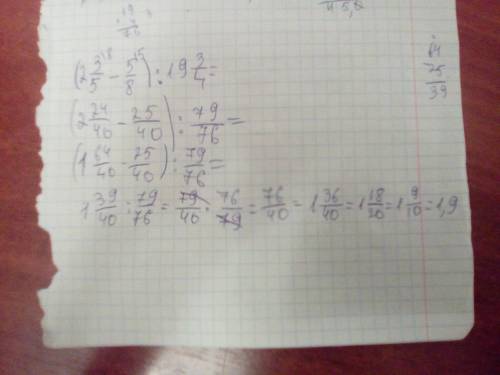 19
76
45,2
(2 3/5 ⁸ - 5/8 ⁵) : 19 3/4 =
64
25
39
(2 24/40 - 25/40) : 79/76 =
(1 64/40 - 25/40) : 79/76 =
1 39/40 : 79/76 = 79/40 · 76/79 = 76/40 = 1 36/40 = 1 18/20 = 1 9/10 = 1,9